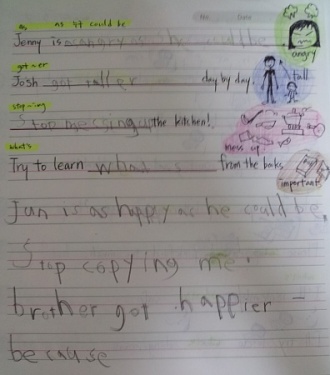 as it could be
Jenny is as angry as she could be
angry
got ~er
Josh got taller day by day.
tall
stop ~ing
Stop messing up the kitchen!
mess up
what's
Try to learn what is from the
important
Jun is as happy as he could be.
Stop copying me.
brother got happier -
because